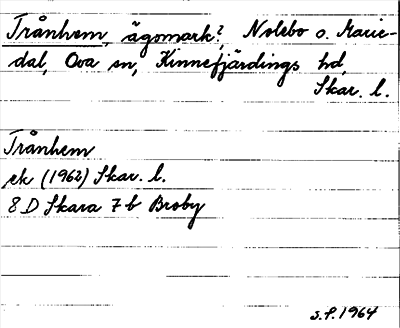 Trånhem, ägomark?, Nolebo o. Marie-
dal, Ova sn, Kinnefjärdings hd,
Skar. l.
Trånhem
ek (1962) Skar. l.
8 D Skara 7 b Broby
S.F. 1964